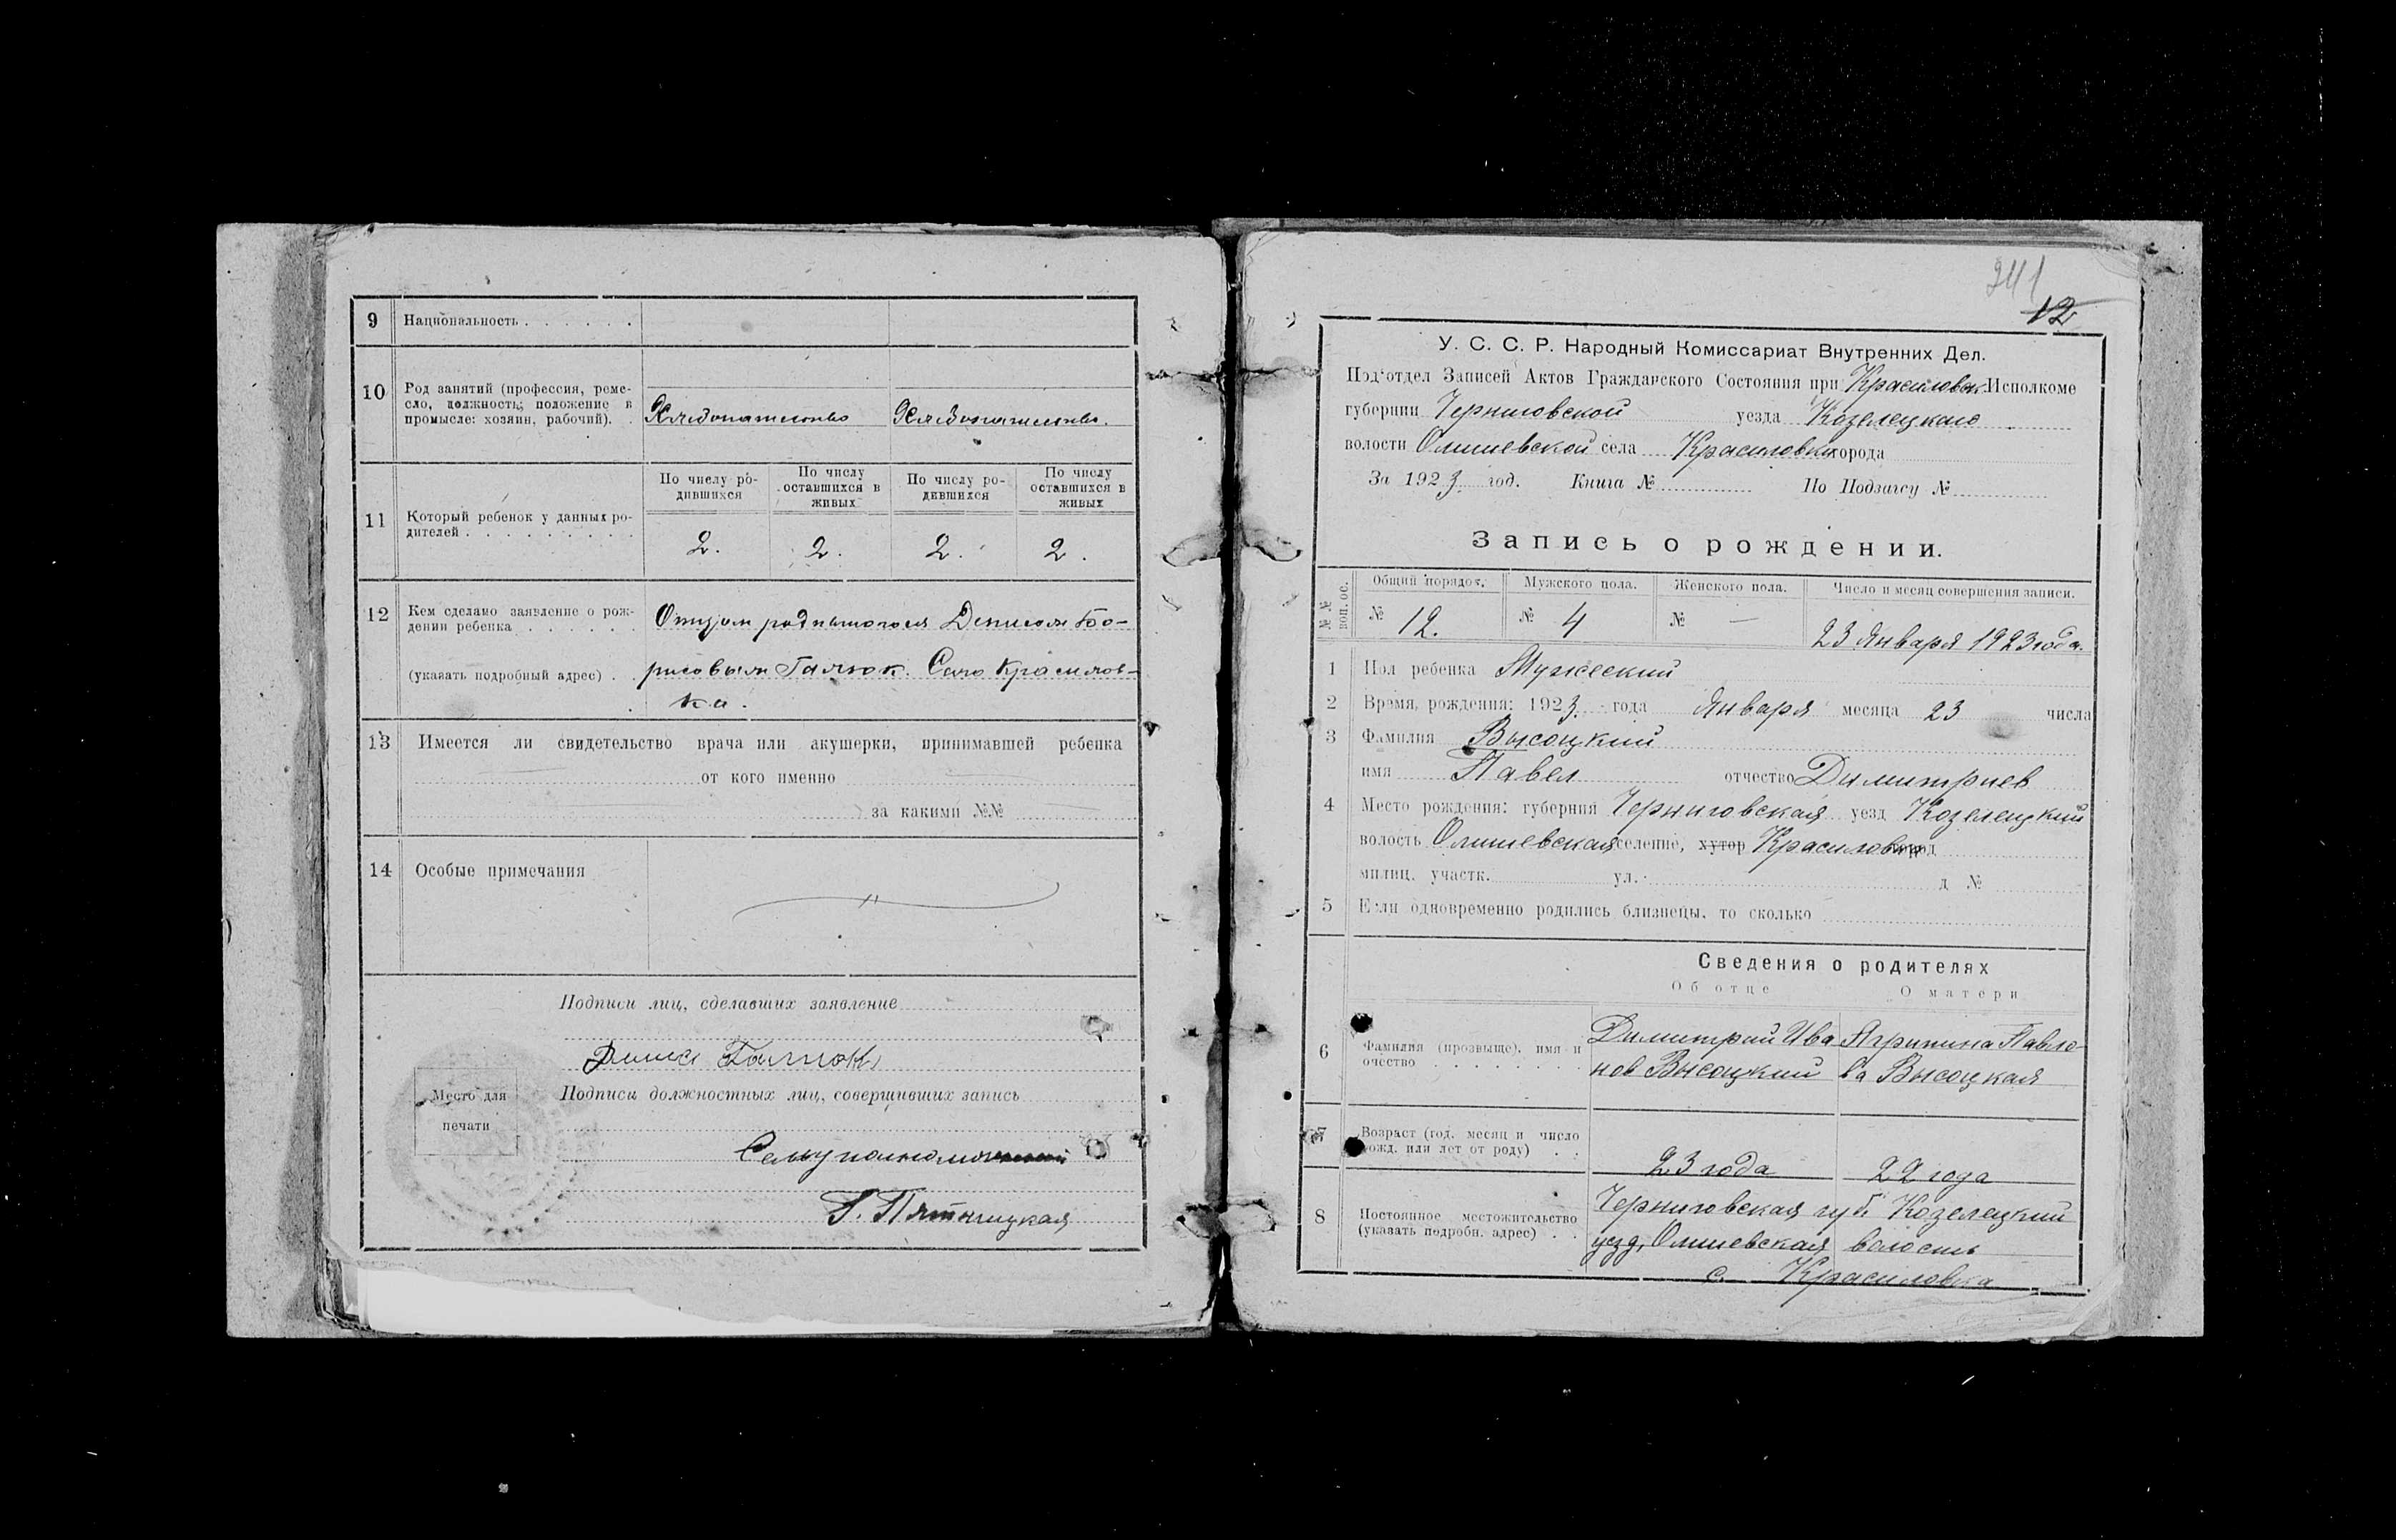 9 Национальность . . . . . .
10 Род занятий (профессия, реме-
сло, должность; положение в
промысле: хозяин, рабочий). .
Хлебопашество Хлебопашество.
11 Который ребенок у данных ро-
дителей . . . . . . . . .
По числу ро-
дившихся
По числу
оставшихся в
живых
По числу ро-
дившихся
По числу
оставшихся в
живых
2. 2. 2. 2.
12 Кем сделано заявление о рож-
дении ребенка . . . . . .
Отцом родившогося Денисом Бо-
(указать подробный адрес) . . рисовым Галюк. Село Красилов-
ка.
13 Имеется ли свидетельство врача или акушерки, принимавшей ребенка
от кого именно
за какими №№
14 Особые примечания
Подписи лиц, сделавших заявление
Денис Галюк
Место для
печати
Подписи должностных лиц, совершивших запись
Г. Пятницкая
241
12
У. С. С. Р. Народный Комиссариат Внутренних Дел.
Под'отдел Записей Актов Гражданского Состояния при Красиловск. Исполкоме
губернии Черниговской уезда Козелецкого
волости Олишевской села Красиловки города
За 1923 год. Книга № По Подзагсу №
Запись о рождении.
№ № поп. ос.
Общий порядок. Мужского пола. Женского пола. Число и месяц совершения записи.
№ 12. № 4 № — 23 Января 1923 года.
1 Пол ребенка Мужеский
2 Время, рождения: 1923. года Января месяца 23 числа
3 Фамилия Высоцкий
имя Павел отчество Димитриев
4 Место рождения: губерния Черниговская уезд Козелецкий
волость Олишевская селение, хутор Красиловка город
милиц. участк. ул. д №
5 Если одновременно родились близнецы, то сколько
Сведения о родителях
Об отце О матери
6 Фамилия (прозвыще), имя и
очество . . . . . . . .
Димитрий Ива-
нов Высоцкий
Агрипина Павло-
ва Высоцкая
7 Возраст (год, месяц и число
рожд. или лет от роду) . .
23 года 22 года
8 Постоянное местожительство
(указать подробн. адрес) . .
Черниговская губ. Козелецкий
уезд, Олишевская волость
с. Красиловка